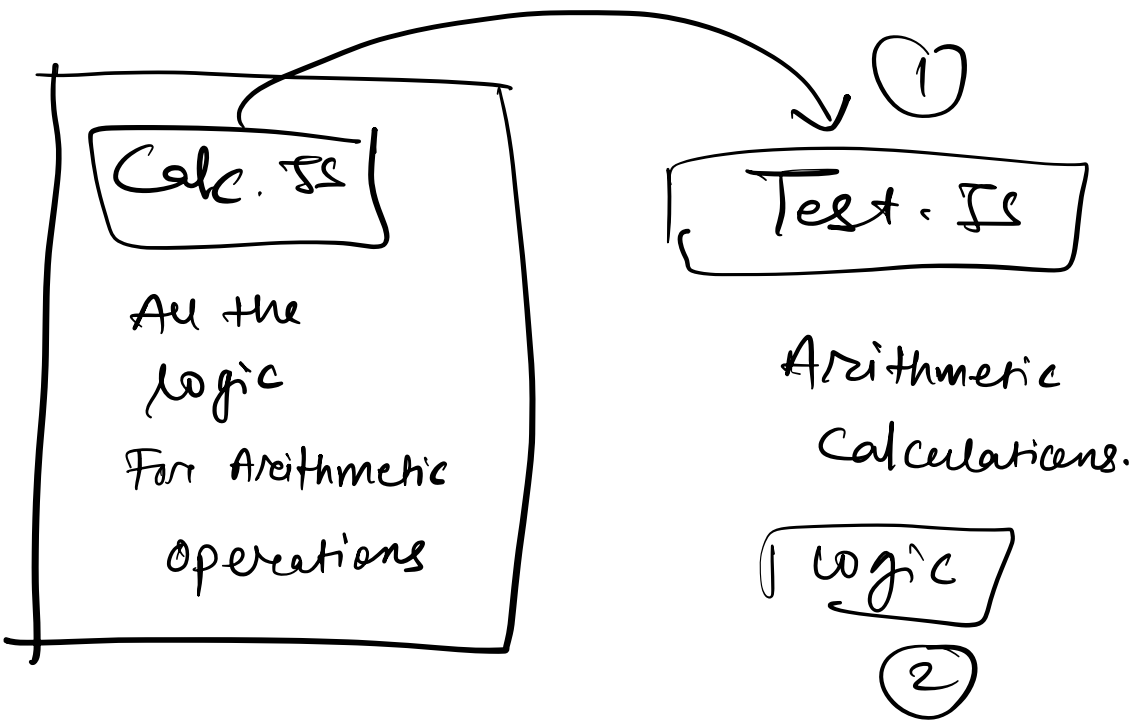 Calc. JS
All the
logic
For Arithmetic
operations
1
Test. JS
Arithmetic
Calculations.
logic
2